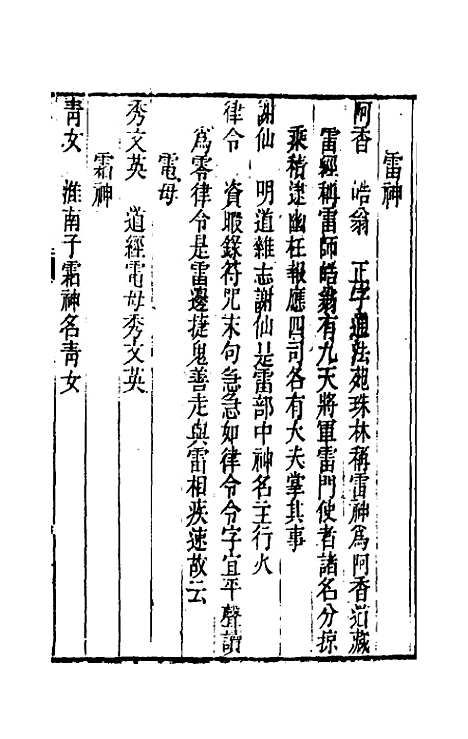 雷神
阿香　皓翁　正字通法苑珠林稱雷神爲阿香道藏
雷經稱雷師皓翁有九天將軍雷門使者諸名分掠
乘稽逮幽枉報應四司各有大夫掌其事
謝仙　明道雜志謝仙是雷部中神名主行火
律令　資暇錄符咒末句急急如律令令字宜平聲讀
爲零律令是雷邊捷鬼善走與雷相疾速故云
電母
秀文英　道經電母秀文英
霜神
靑女　淮南子霜神名靑女